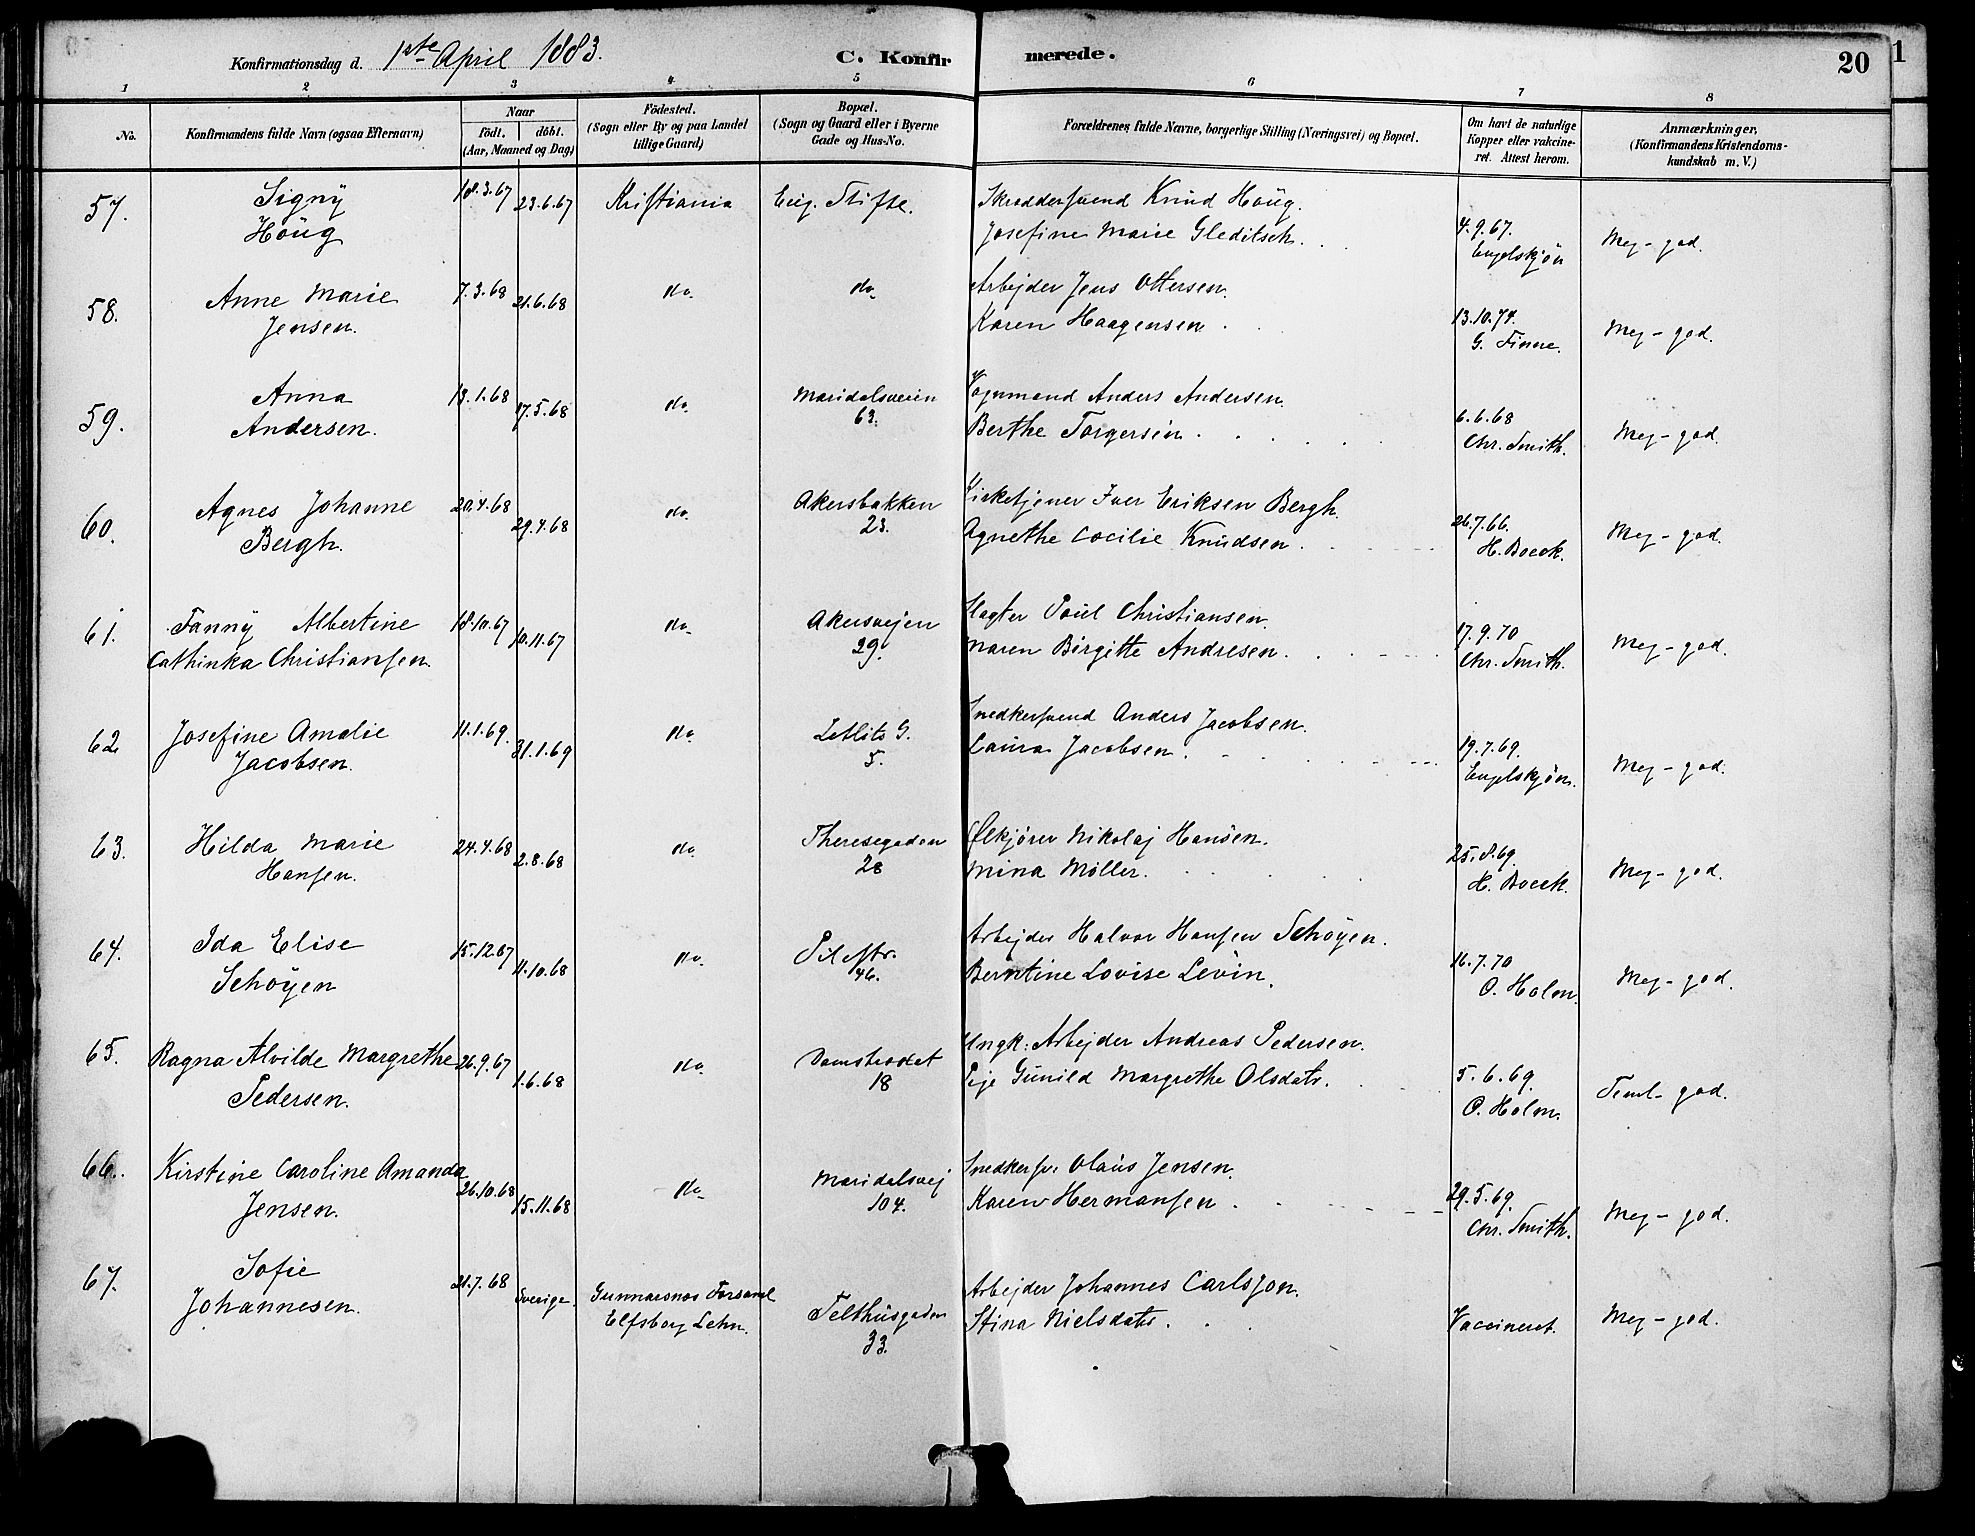 Konfirmationsdag d. 1ste April 1883.
C. Konfirmerede.
20
1
1 2 3 4 5 6 7 8
No.
Konfirmandens fulde Navn (ogsaa Efternavn)
Naar
födt. döbt.
(Aar, Maaned og Dag)
Födested.
(Sogn eller By og paa Landet
tillige Gaard)
Bopæl.
(Sogn og Gaard eller i Byerne
Gade og Hus-No.
Forældrenes fulde Navne, borgerlige Stilling (Næringsvei) og Bopæl.
Om havt de naturlige
Kopper eller vakcine-
ret. Attest herom.
Anmærkninger,
(Konfirmandens Kristendoms-
kundskab m. V.)
57. Signy Höug 18.3.67 23.6.67 Kristiania Eug. Stifte. Skrædersvend Knud Höug.
Josefine Marie Gleditsch. 4.9.67. Engelskjön Meg-god.
58. Anne Marie Jensen. 7.3.68 21.6.68 do. do. Arbejder Jens Ottersen.
Karen Haagensen. 13.10.74. G. Finne. Meg-god.
59. Anna Andersen. 13.1.68 17.5.68 do. Maridalsveien 63. Vognmand Anders Andersen.
Berthe Torgersen. 6.6.68 Chr. Smith. Meg-god.
60. Agnes Johanne Bergh. 20.4.68 29.4.68 do. Akersbakken 23. Kirketjener Iver Eriksen Bergh.
Agnethe Cecilie Knudsen. 26.7.66. H. Boeck. Meg-god.
61. Fanny Albertine Cathinka Christiansen. 18.10.67 10.11.67 do. Akersvejen 29. Slagter Poul Christiansen.
Maren Birgitte Andresen. 17.9.70 Chr. Smith. Meg-god.
62 Josefine Amalie Jacobsen. 11.1.69. 31.1.69 do. Zetlitz G. 5. Snedkersvend Anders Jacobsen.
Laura Jacobsen. 19.7.69. Engelskjön. Meg-god.
63. Hilda Marie Hansen. 24.4.68 2.8.68 do. Theresegaden 28 Ölkjörer Nikolaj Hansen.
Mina Möller. 25.8.69. H. Boeck. Meg-god.
64. Ida Elise Schöyen 15.12.67 11.10.68 do. Pilestr. 46. Arbejder Halvor Hansen Schöyen.
Berntine Lovise Levin. 16.7.70 O. Holm. Meg-god.
65. Ragna Alvilde Margrethe Pedersen. 26.9.67 1.6.68 do. Damstrædet 18 Ungk: Arbejder Andreas Pedersen.
Pige Gunild Margrethe Olsdatr. 5.6.69. O. Holm. Teml-god.
66. Kirstine Caroline Amanda Jensen. 26.10.68 15.11.68 do. Maridalsvej 104. Snedkersv: Olaus Jensen.
Karen Hermansen. 29.5.69. Chr. Smith. Meg-god.
67. Sofie Johannesen. 21.7.68 Sverige. Gunnarsnæs Forsaml Elfsborg Lehn. Telthusgaden 33. Arbejder Johannes Carlsson.
Stina Nielsdatr. Vaccineret. Meg-god.